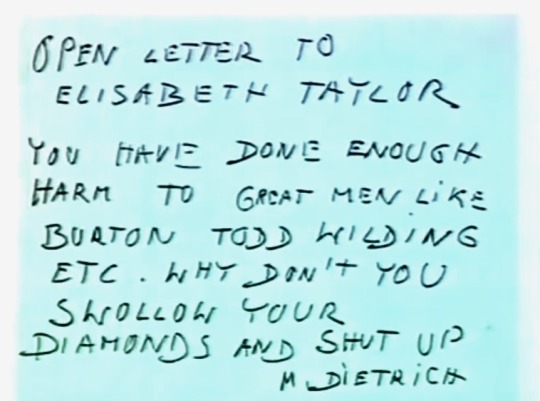 OPEN LETTER TO
ELISABETH TAYLOR
YOU HAVE DONE ENOUGH
HARM TO GREAT MEN LIKE
BURTON TODD WILDING
ETC. WHY DON'T YOU
SWOLLOW YOUR
DIAMONDS AND SHUT UP
M. DIETRICH